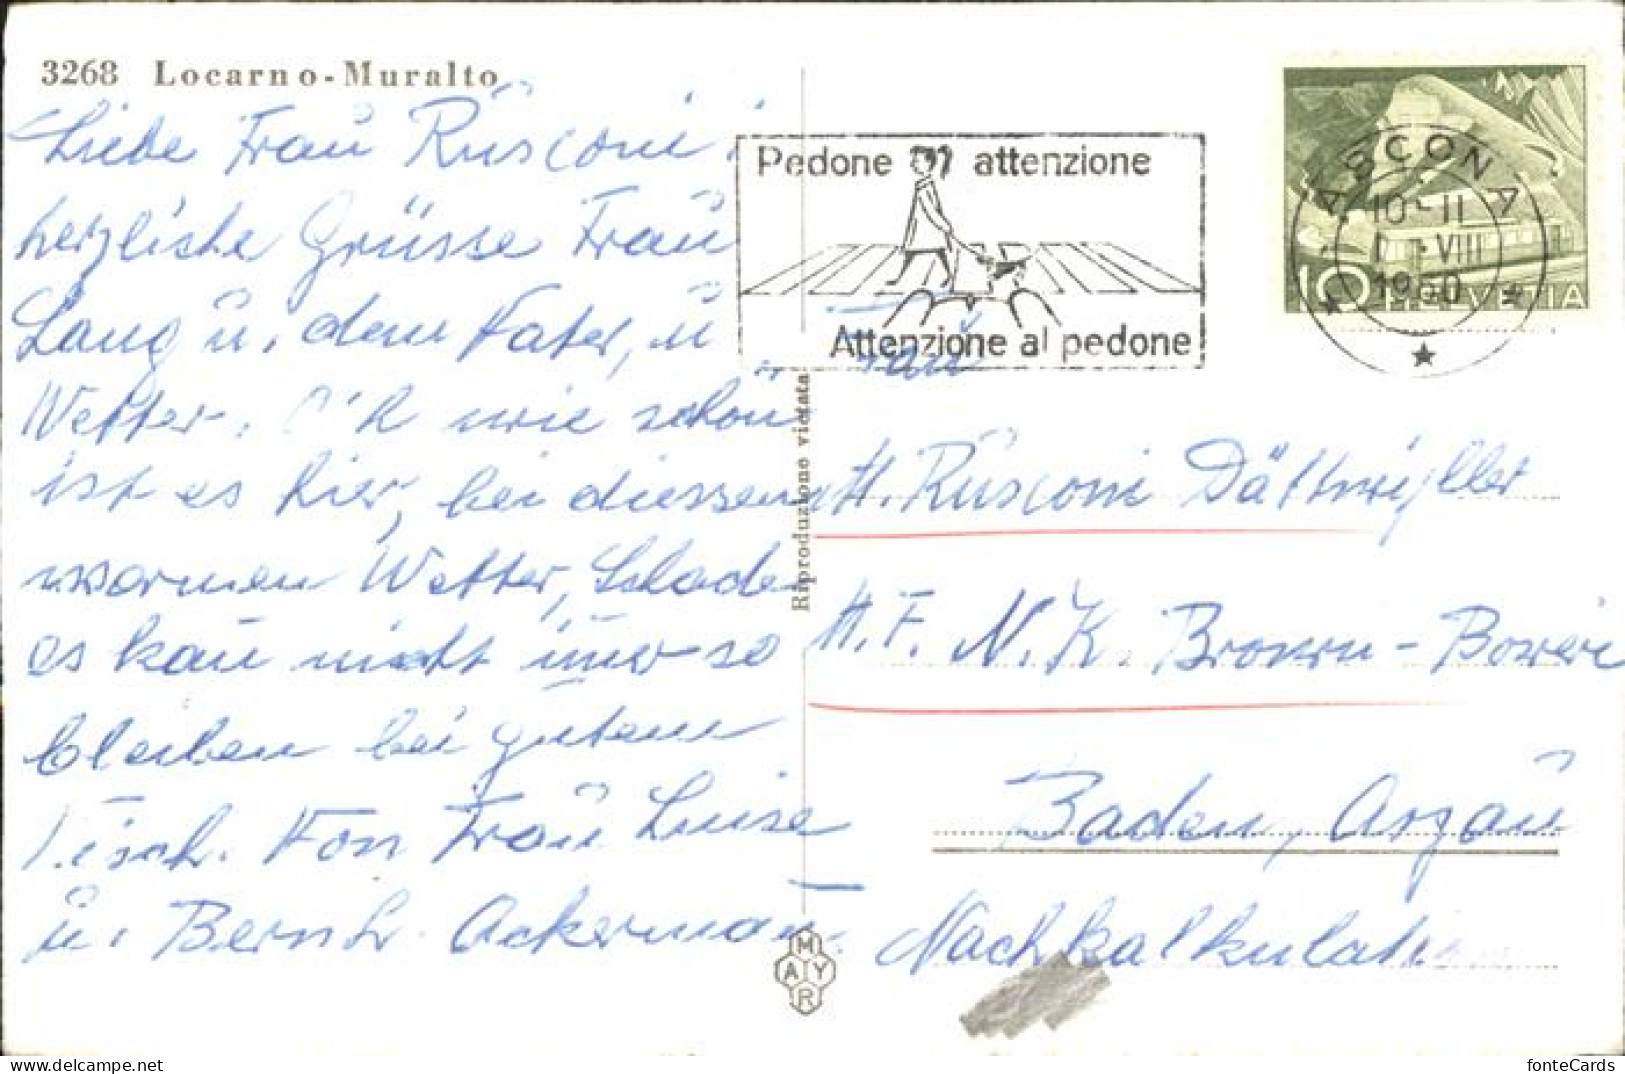 3268 Locarno-Muralto
Liebe Frau Rüsconi!
herzliche Grüsse Frau
Lang ü. dem Vater, ü
Wetter. wie schön
ist es hier, bei diessem
warmen Wetter, Schade
es kan nicht imer so
bleiben bei gutem
Tisch. Von Frau Luise
ü. Bernh. Ackerman.
Pedone attenzione
Attenzione al pedone
ASCONA
10-11
VIII
1960
10 HELVETIA
Riproduzione vietata
Frau
H. Rüsconi Dättwyller
H. F. N. K. Brown-Boweri
Baden, Argaü
Nachkalkulation
MAYR
fonteCards